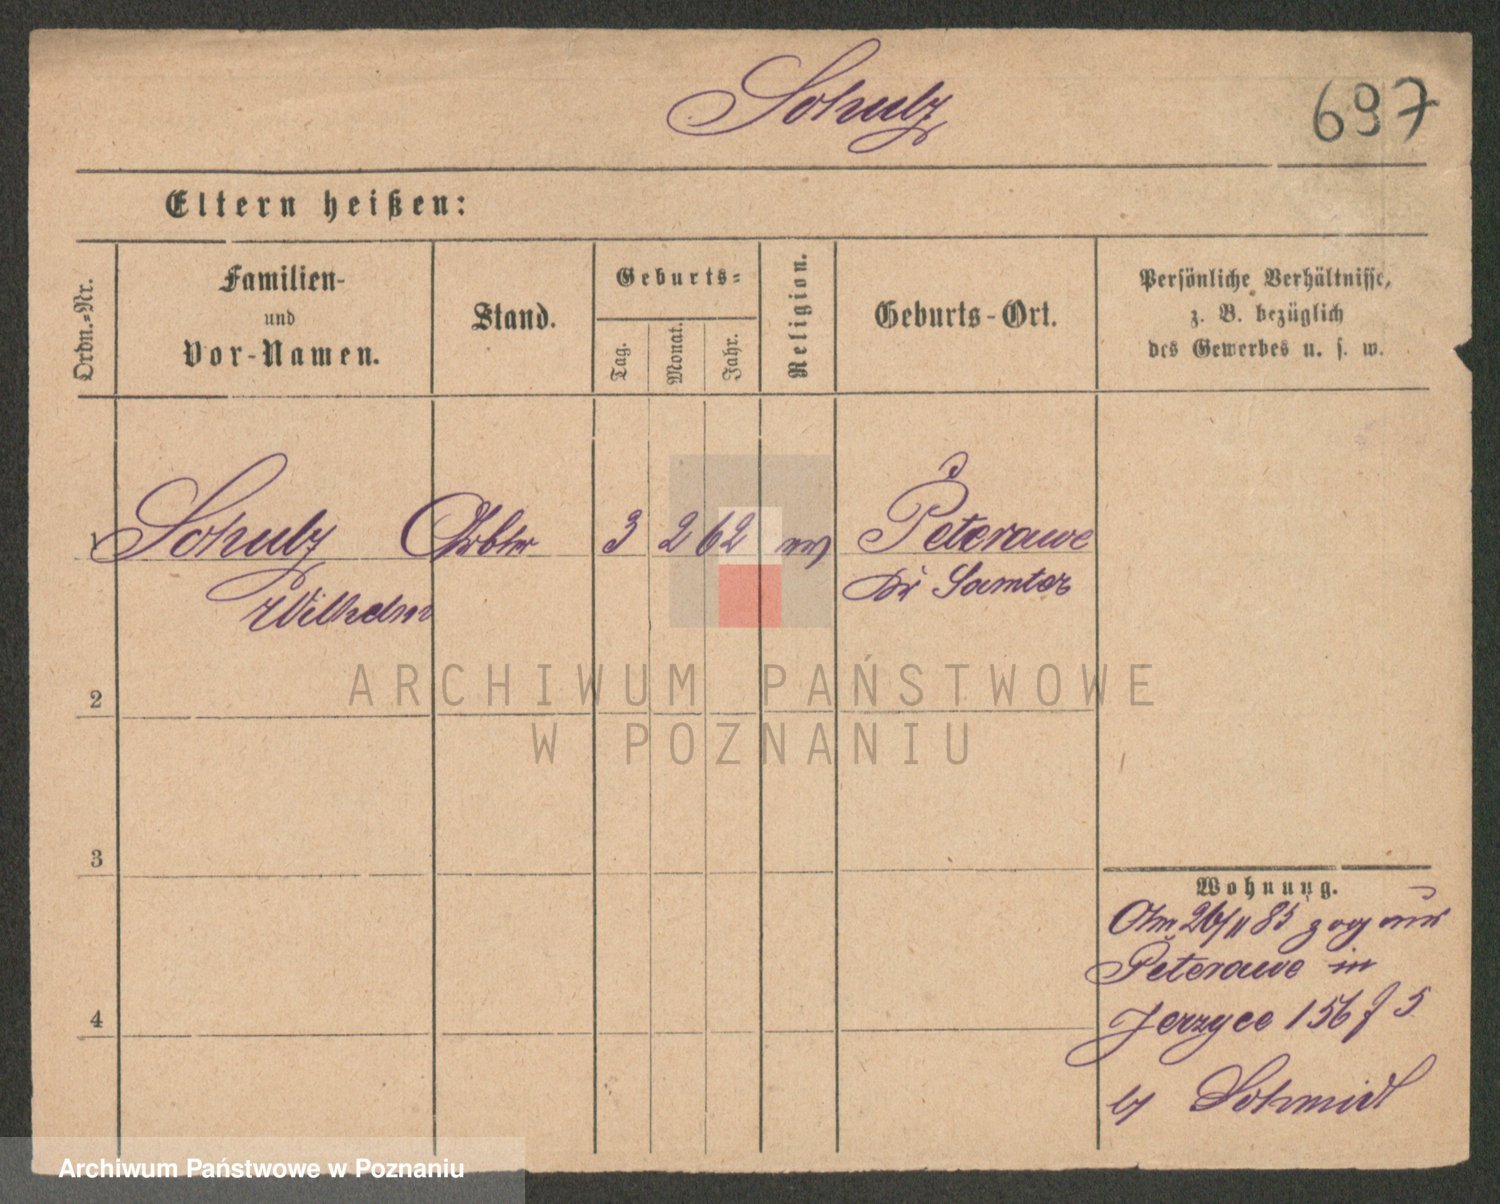 Schulz
697
Eltern heißen:
Ordn.=Nr.
Familien-
und
Vor-Namen.
Stand.
Geburts=
Tag.
Monat.
Jahr.
Religion.
Geburts-Ort.
Persönliche Verhältnisse,
z. B. bezüglich
des Gewerbes u. s. w.
1 Schulz Arbtr 3 2 62 ev Peterawe
Wilhelm Kr Samter
2
3
4
Wohnung.
Am 26/11 85 zog aus
Peterawe in
Jerzyce 156
b/ Schmidt
ARCHIWUM PAŃSTWOWE
W POZNANIU
Archiwum Państwowe w Poznaniu